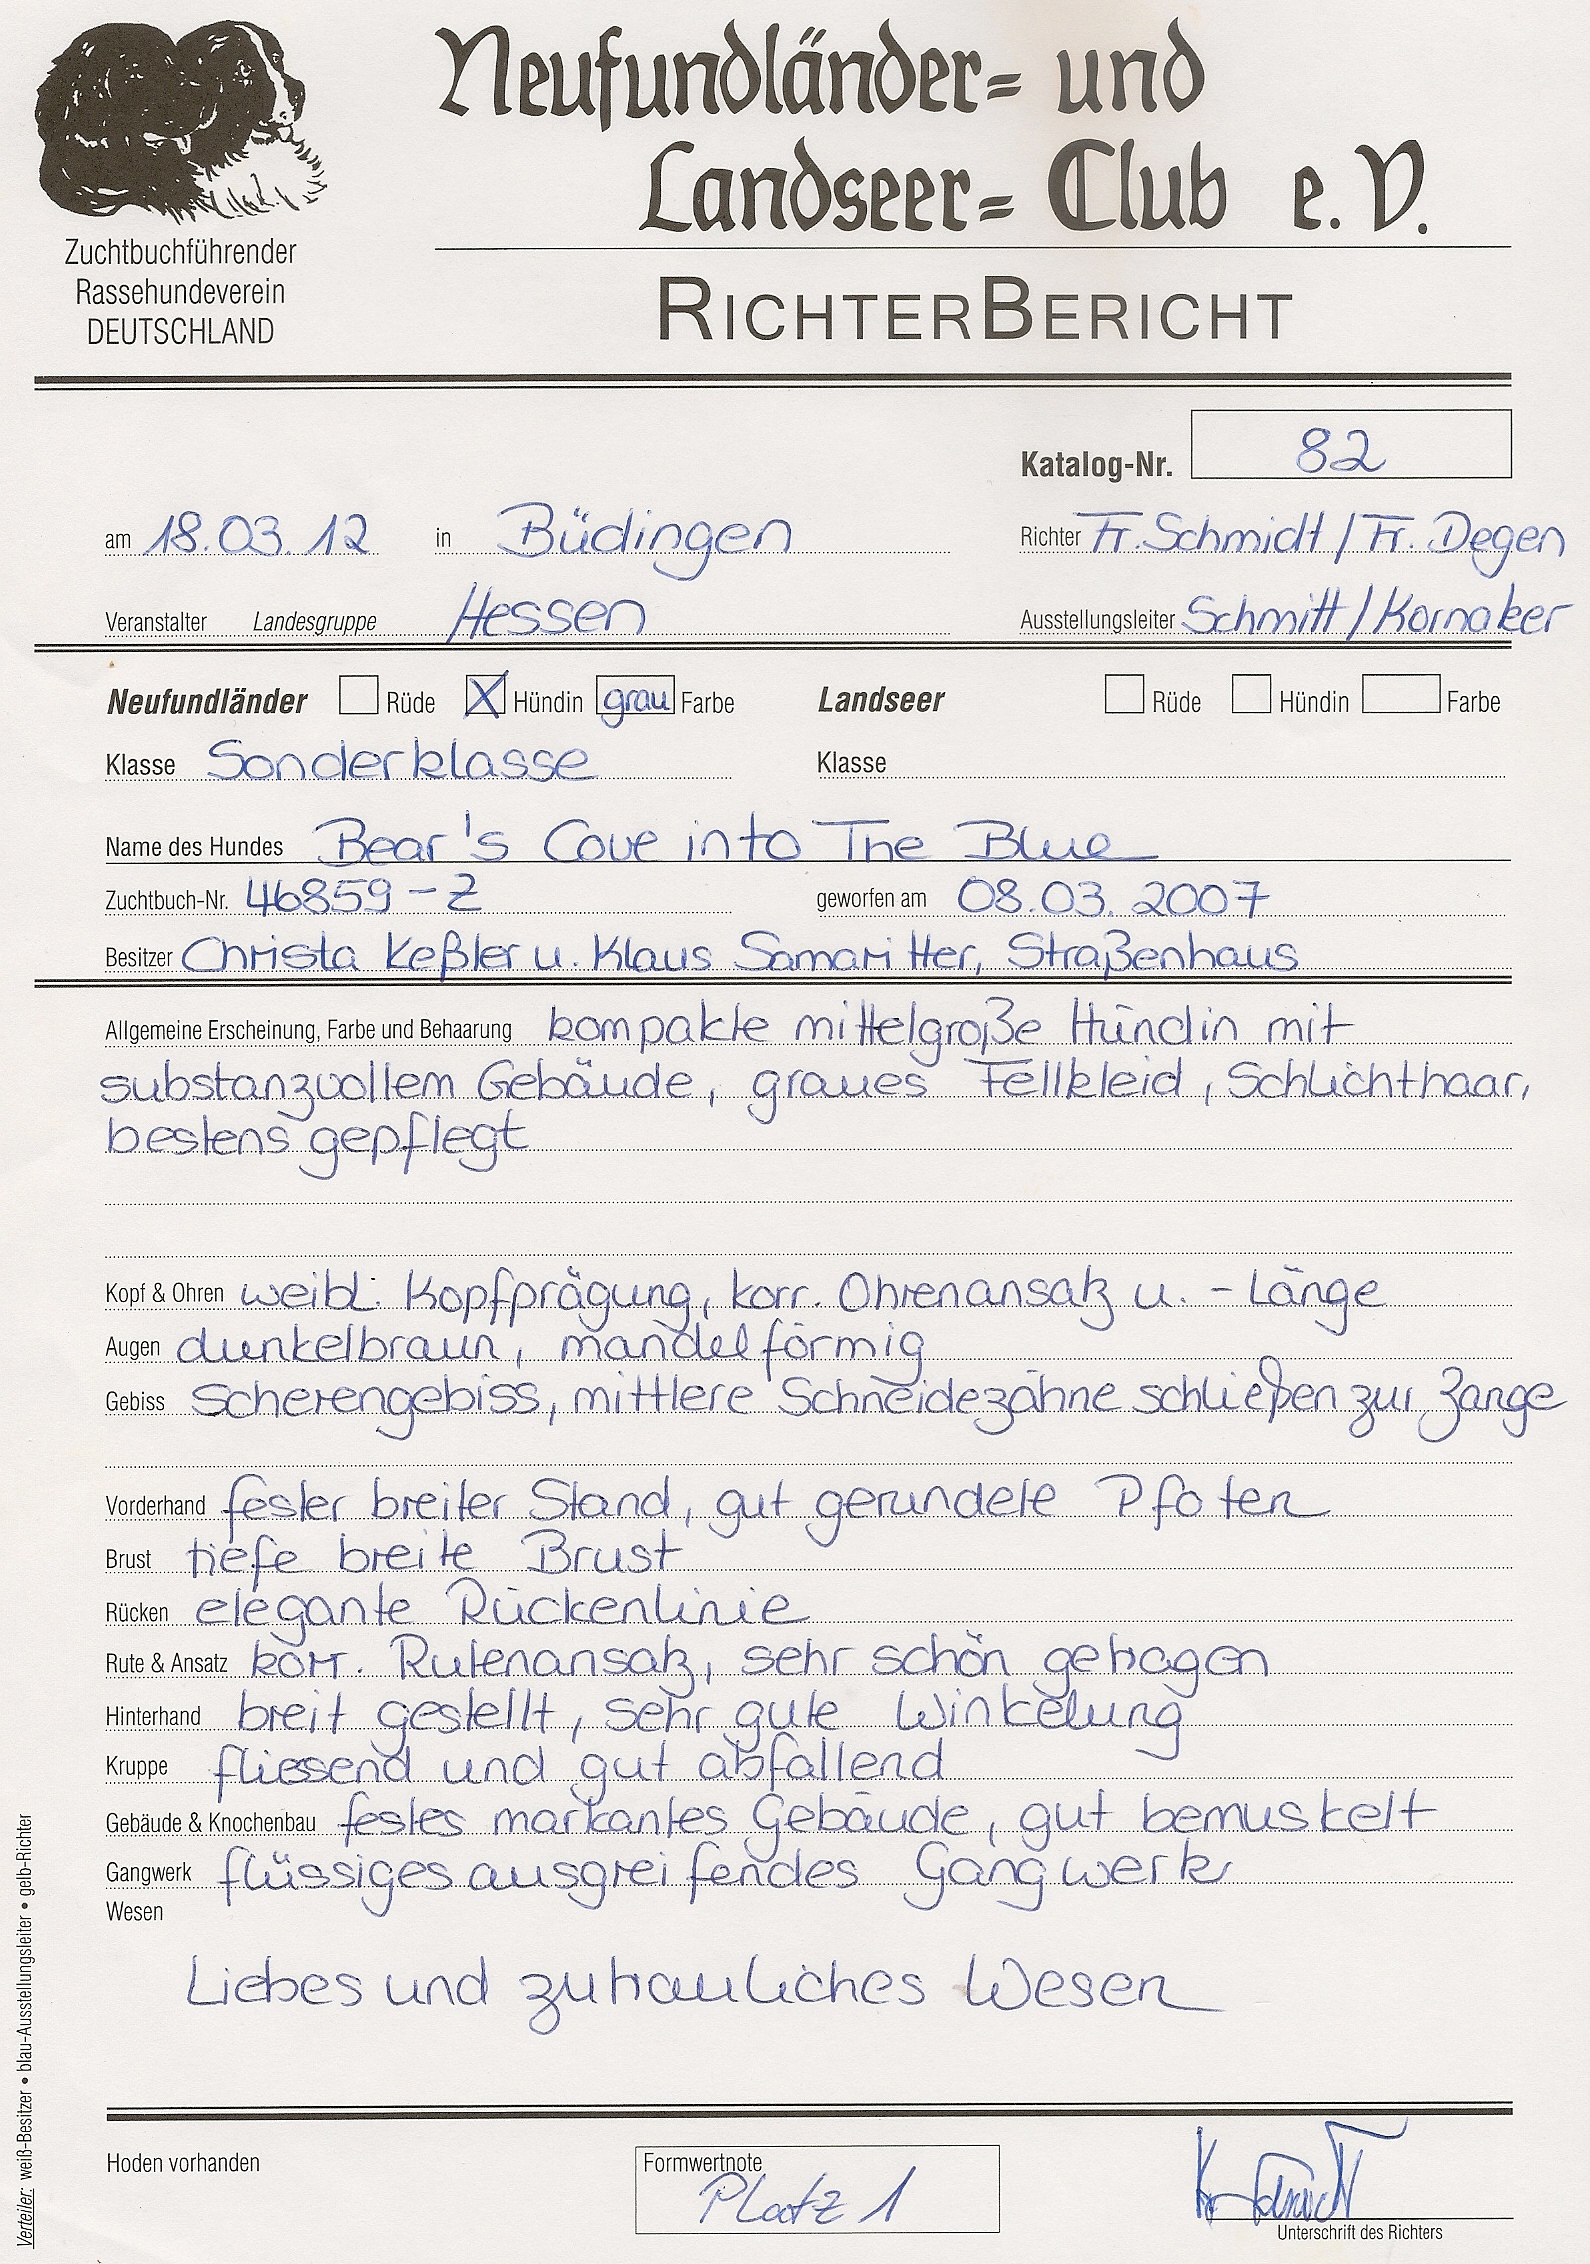 Neufundländer= und
Landseer= Club e. V.
Zuchtbuchführender
Rassehundeverein
DEUTSCHLAND
RICHTERBERICHT
Katalog-Nr. 82
am 18.03.12 in Büdingen Richter Fr. Schmidt / Fr. Degen
Veranstalter Landesgruppe Hessen Ausstellungsleiter Schmitt / Kornaker
Neufundländer Rüde X Hündin grau Farbe Landseer Rüde Hündin Farbe
Klasse Sonderklasse Klasse
Name des Hundes Bear's Cove into The Blue
Zuchtbuch-Nr. 46859-Z geworfen am 08.03.2007
Besitzer Christa Keßler u. Klaus Samaritter, Straßenhaus
Allgemeine Erscheinung, Farbe und Behaarung kompakte mittelgroße Hündin mit
substanzvollem Gebäude, graues Fellkleid, Schlichthaar,
bestens gepflegt
Kopf & Ohren weibl. Kopfprägung, korr. Ohrenansatz u. -Länge
Augen dunkelbraun, mandelförmig
Gebiss Scherengebiss, mittlere Schneidezähne schließen zur Zange
Vorderhand fester breiter Stand, gut gerundete Pfoten
Brust tiefe breite Brust
Rücken elegante Rückenlinie
Rute & Ansatz korr. Rutenansatz, sehr schön getragen
Hinterhand breit gestellt, sehr gute Winkelung
Kruppe fliessend und gut abfallend
Gebäude & Knochenbau festes markantes Gebäude, gut bemuskelt
Gangwerk flüssiges ausgreifendes Gangwerk
Wesen
Liebes und zutrauliches Wesen
Hoden vorhanden
Formwertnote
Platz 1
Unterschrift des Richters
Verteiler: weiß-Besitzer • blau-Ausstellungsleiter • gelb-Richter